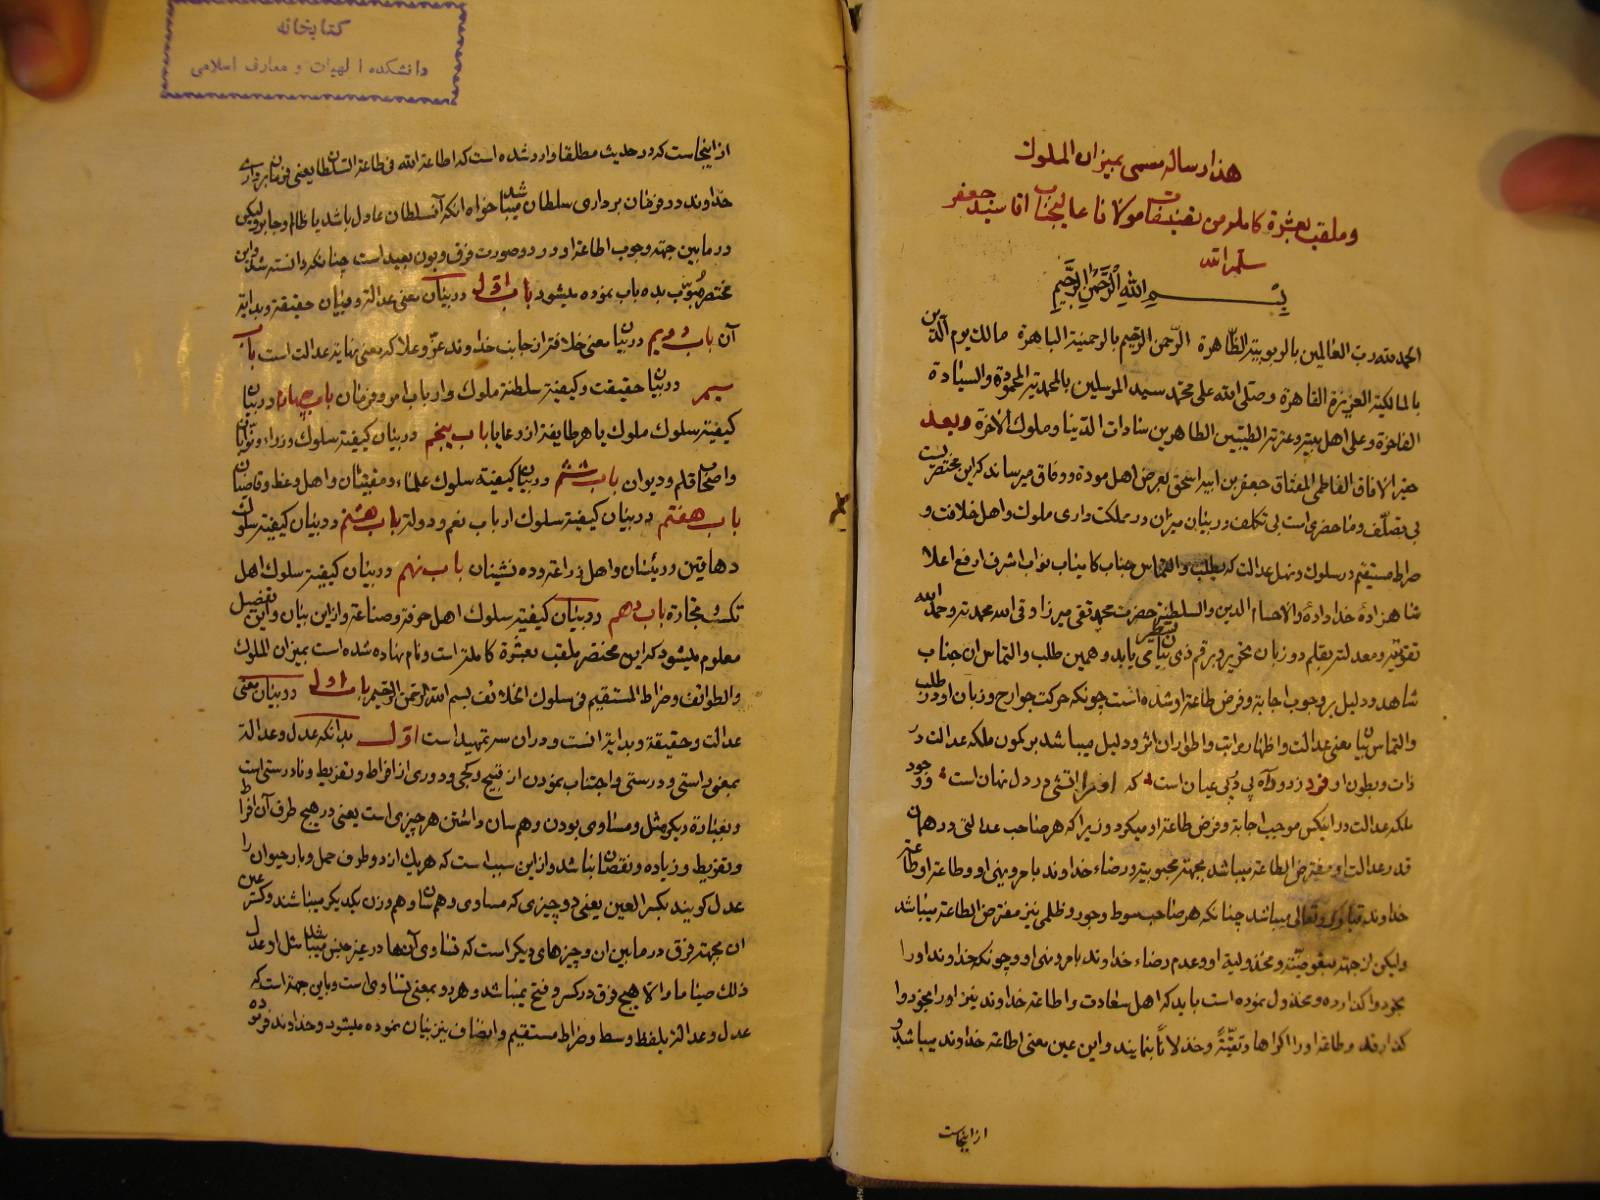 هذا رساله مسمی بمیزان الملوک
وملقب بعشرة کامله من تصنیفات مولانا عالیجناب اقا سید جعفر
سلمه الله
بسم الله الرحمن الرحیم
الحمد لله رب العالمین بالربوبیة الظاهرة الرحمن الرحیم بالرحمیة الباهرة مالک یوم الدین
بالمالکیة العزیزة القاهرة وصلی الله علی محمد سید المرسلین بالمحمدیة المحمودة والسیادة
الفاخرة وعلی اهل بیته وعترته الطیبین الطاهرین سادات الدنیا وملوک الآخرة وبعد
حقیر الآفاق الفاطمی المفتاق جعفر بن ابی اسحق بعرض اهل مودة ووفاق میرساند که این مختصریست
بی تصلف وما حضری است بی تکلف در بیان میزان در مملکت داری ملوک واهل خلافت و
صراط مستقیم در سلوک ومنهل عدالت که بطلب والتماس جناب کامیاب نواب اشرف ارفع اعلا
شاهزاده خداداده والاحسام الدین والسلطنة حضرت محمد تقی میرزا وقی الله محمدته وحمد الله
تقویته ومعدلته بقلم دو زبان تحریر وبرقم ذی بیانی تسطیر یابد وهمین طلب والتماس ان جناب
شاهد ودلیل بر وجوب اجابة وفرض طاعة او شده است چونکه حرکت جوارح وزبان او در طلب
والتماس بیان معنی عدالت واظهار مراتب واطوار ان اثر ودلیل میباشد بر کمون ملکه عدالت در
ذات وبطون او فرد زدود آه پی دپی عیان است که او را اتشی در دل نهان است ووجود
ملکه عدالت در اینکس موجب اجابة وفرض طاعة او میکردد زیرا که هر صاحب عدالتی در همان
قدر عدالت او مفترض الطاعة میباشد بجهة محبوبیة ورضاء خداوند بامر ونهی او وطاعة او طاعة
خداوند تبارک وتعالی میباشد چنانکه هر صاحب سوط وجور وظلمی نیز مفترض الطاعة میباشد
ولیکن از جهة مبغوضیة ومخذولیة او وعدم رضاء خداوند بامر ونهی او وچونکه خداوند او را
بخود واکذارده ومخذول نموده است باید که اهل سعادت واطاعة خداوند نیز او را بخود وا
کذارند وطاعة او را اکراها وتقیة وخذلانا بنمایند واین عین معنی اطاعة خداوند میباشد و
از اینجاست
کتابخانه
دانشکده الهیات و معارف اسلامی
از اینجاست که در حدیث مطلقا وارد شده است که اطاعة الله فی طاعة السلطان یعنی فرمان برداری
خداوند در فرمان برداری سلطان میباشد خواه انکه آنسلطان عادل باشد یا ظالم وجابر ولیکن
در مابین جهة وجوب اطاعة او در دو صورت فرق وبون بعید است چنانکه دانسته شد واین
مختصر مبوب بده باب نموده میشود باب اول در بیان معنی عدالة وبیان حقیقة وبدایة
آن باب دویم در بیان معنی خلافة از جانب خداوند عز وعلا که معنی نهایة عدالت است باب
سیم در بیان حقیقت وکیفیة سلطنة ملوک وارباب امر وفرمان باب چهارم در بیان
کیفیة سلوک ملوک با هر طایفة از رعایا باب پنجم در بیان کیفیة سلوک وزراء ونوابان
واصحاب قلم ودیوان باب ششم در بیان کیفیة سلوک علماء ومفتیان واهل وعظ وقاضیان
باب هفتم در بیان کیفیة سلوک ارباب نعم ودولة باب هشتم در بیان کیفیة سلوک
دهاقین ورئیسان واهل زراعة وده نشینان باب نهم در بیان کیفیة سلوک اهل
تکسب وتجارة باب دهم در بیان کیفیة سلوک اهل حرفة وصناعة واز این بیان واین تفضیل
معلوم میشود که این مختصر ملقب بعشرة کاملة است ونام نهاده شده است بمیزان الملوک
والطوائف وصراط المستقیم فی سلوک الخلائف بسم الله الرحمن الرحیم باب اول در بیان معنی
عدالت وحقیقة وبدایة انست ودر ان سه تمهید است اول بدانکه عدل وعدالة
بمعنی راستی ودرستی واجتناب نمودن از قبیح وکجی ودوری از افراط وتفریط ونادرستی است
وبعبارة دیکر مثل ومساوی بودن وهم سان داشتن هر چیزی است یعنی در هیچ طرف آن افراط
وتفریط وزیاده ونقصان نباشد واز این سبب است که هریک از دو طرف حمل وبار حیوان را
عدل کویند بکسر العین یعنی دو چیزی که مساوی وهم شان وهم وزن یکدیکر میباشند وکسر عین
ان بجهة فرق در مابین ان وچیزهای دیکر است که تساوی آنها در غیر جنس میباشد مثل او عدل
ذلک صیاما والا هیچ فرق در کسر وفتح نمیباشد وهر دو بمعنی تساوی است وباین جهة است که
عدل وعدالة بلفظ وسط وصراط مستقیم وانصاف نیز بیان نموده میشود وخداوند فرموده